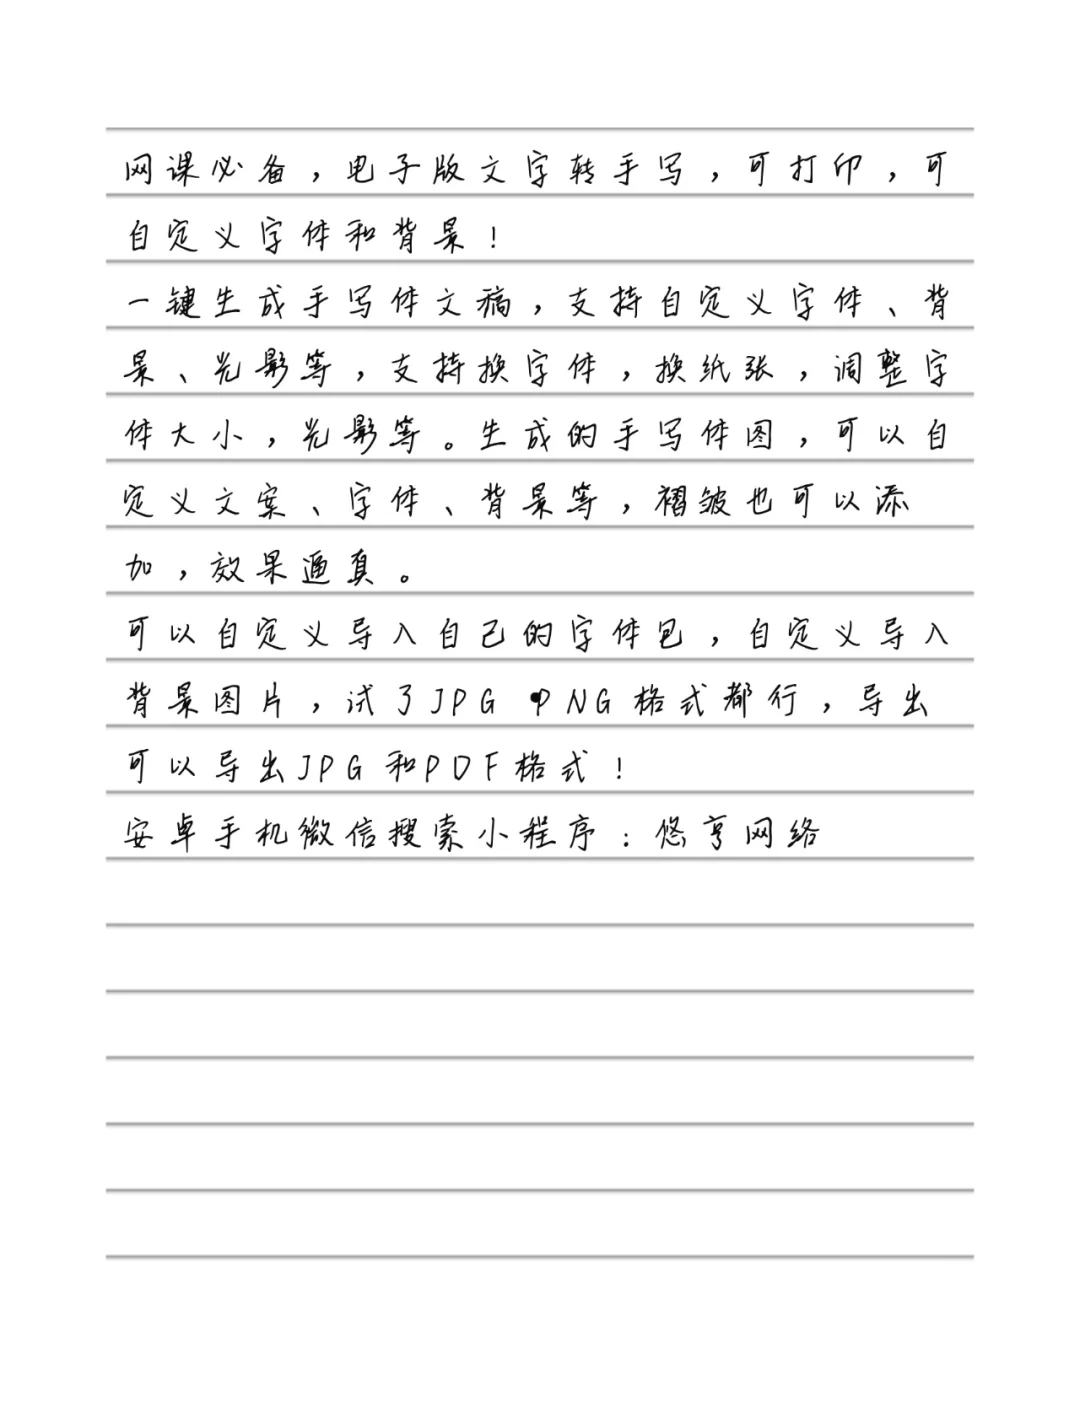 网课必备，电子版文字转手写，可打印，可
自定义字体和背景！
一键生成手写体文稿，支持自定义字体、背
景、光影等，支持换字体，换纸张，调整字
体大小，光影等。生成的手写体图，可以自
定义文案、字体、背景等，褶皱也可以添
加，效果逼真。
可以自定义导入自己的字体包，自定义导入
背景图片，试了JPG PNG格式都行，导出
可以导出JPG和PDF格式！
安卓手机微信搜索小程序：悠亨网络